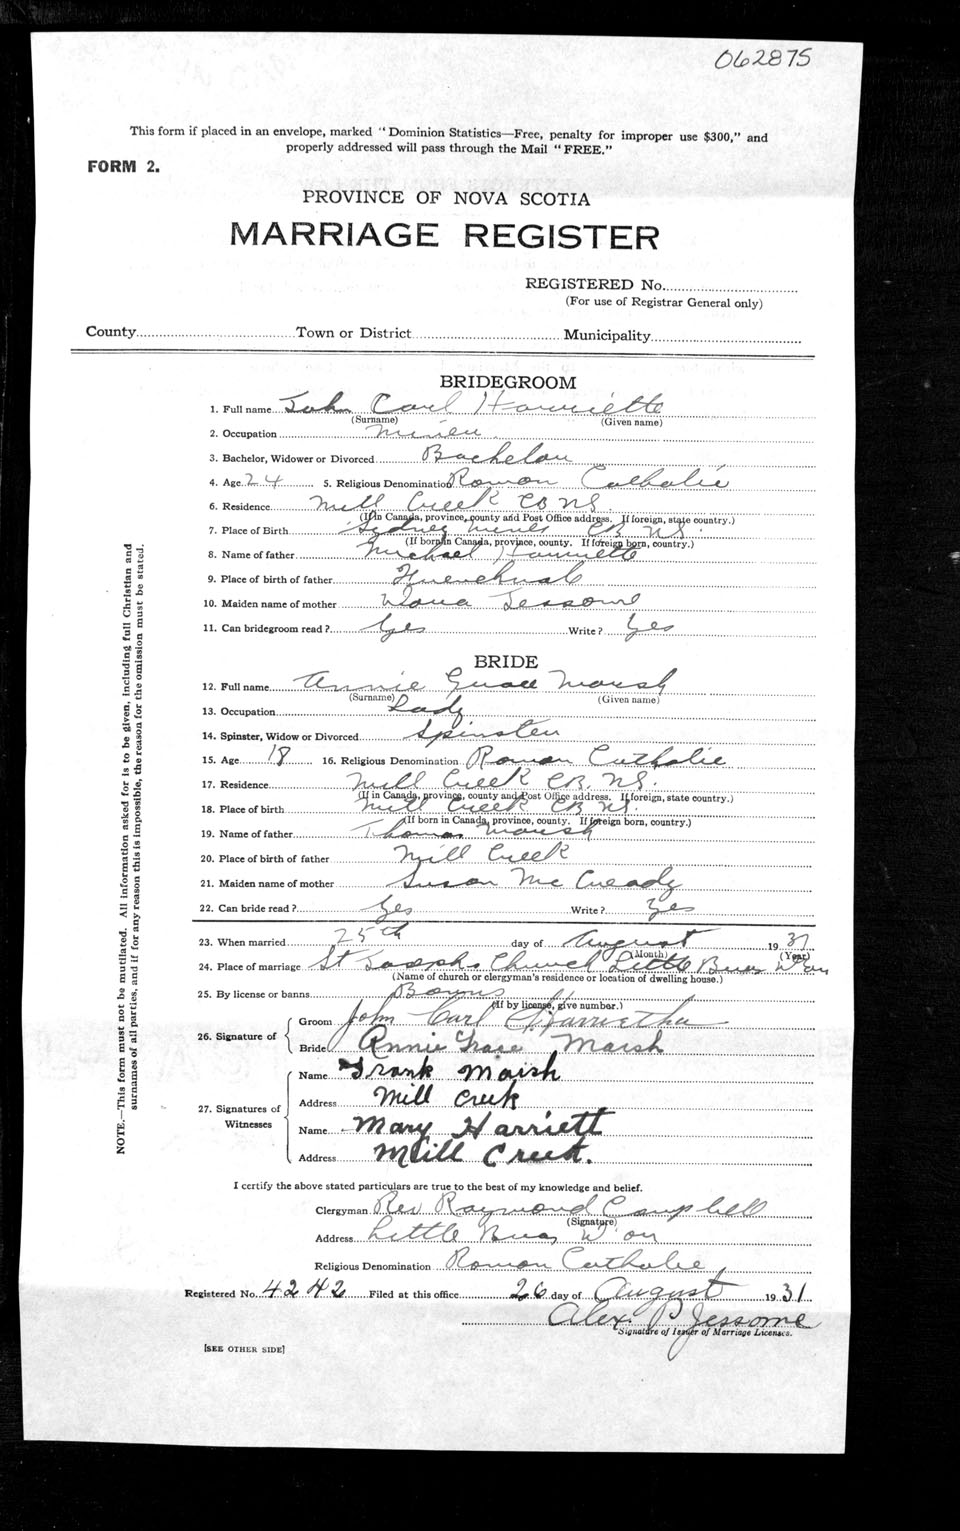 062875
This form if placed in an envelope, marked "Dominion Statistics—Free, penalty for improper use $300," and
properly addressed will pass through the Mail "FREE."
FORM 2.
PROVINCE OF NOVA SCOTIA
MARRIAGE REGISTER
REGISTERED No.
(For use of Registrar General only)
County Town or District Municipality
BRIDEGROOM
1. Full name John Carl Harriette
(Surname) (Given name)
2. Occupation Miner
3. Bachelor, Widower or Divorced Bachelor
4. Age 24 5. Religious Denomination Roman Catholic
6. Residence Mill Creek CB NS.
(If in Canada, province, county and Post Office address. If foreign, state country.)
7. Place of Birth Sydney Mines CB NS.
(If born in Canada, province, county. If foreign born, country.)
8. Name of father Michael Harriette
9. Place of birth of father
10. Maiden name of mother Jessome
11. Can bridegroom read? Yes Write? Yes
BRIDE
12. Full name Annie Grace Marsh
(Surname) (Given name)
13. Occupation Lady
14. Spinster, Widow or Divorced Spinster
15. Age 18 16. Religious Denomination Roman Catholic
17. Residence Mill Creek CB. NS.
(If in Canada, province, county and Post Office address. If foreign, state country.)
18. Place of birth Mill Creek CB NS.
(If born in Canada, province, county. If foreign born, country.)
19. Name of father Thomas Marsh
20. Place of birth of father Mill Creek
21. Maiden name of mother Susan Mc Cready
22. Can bride read? Yes Write? Yes
23. When married 25th day of August 1931
(Month) (Year)
24. Place of marriage St Josephs Church Little Bras D'or
(Name of church or clergyman's residence or location of dwelling house.)
25. By license or banns Banns
(If by license, give number.)
26. Signature of
Groom John Carl Harrietha
Bride Annie Grace Marsh
27. Signatures of Witnesses
Name Frank Marsh
Address Mill Creek
Name Mary Harriett
Address Mill Creek.
I certify the above stated particulars are true to the best of my knowledge and belief.
Clergyman Rev Raymond Campbell
(Signature)
Address Little Bras D'or
Religious Denomination Roman Catholic
Registered No. 4242 Filed at this office 26 day of August 1931
Alex. P Jessome
Signature of Issuer of Marriage Licenses.
[SEE OTHER SIDE]
NOTE.—This form must not be mutilated. All information asked for is to be given, including full Christian and
surnames of all parties, and if for any reason this is impossible, the reason for the omission must be stated.